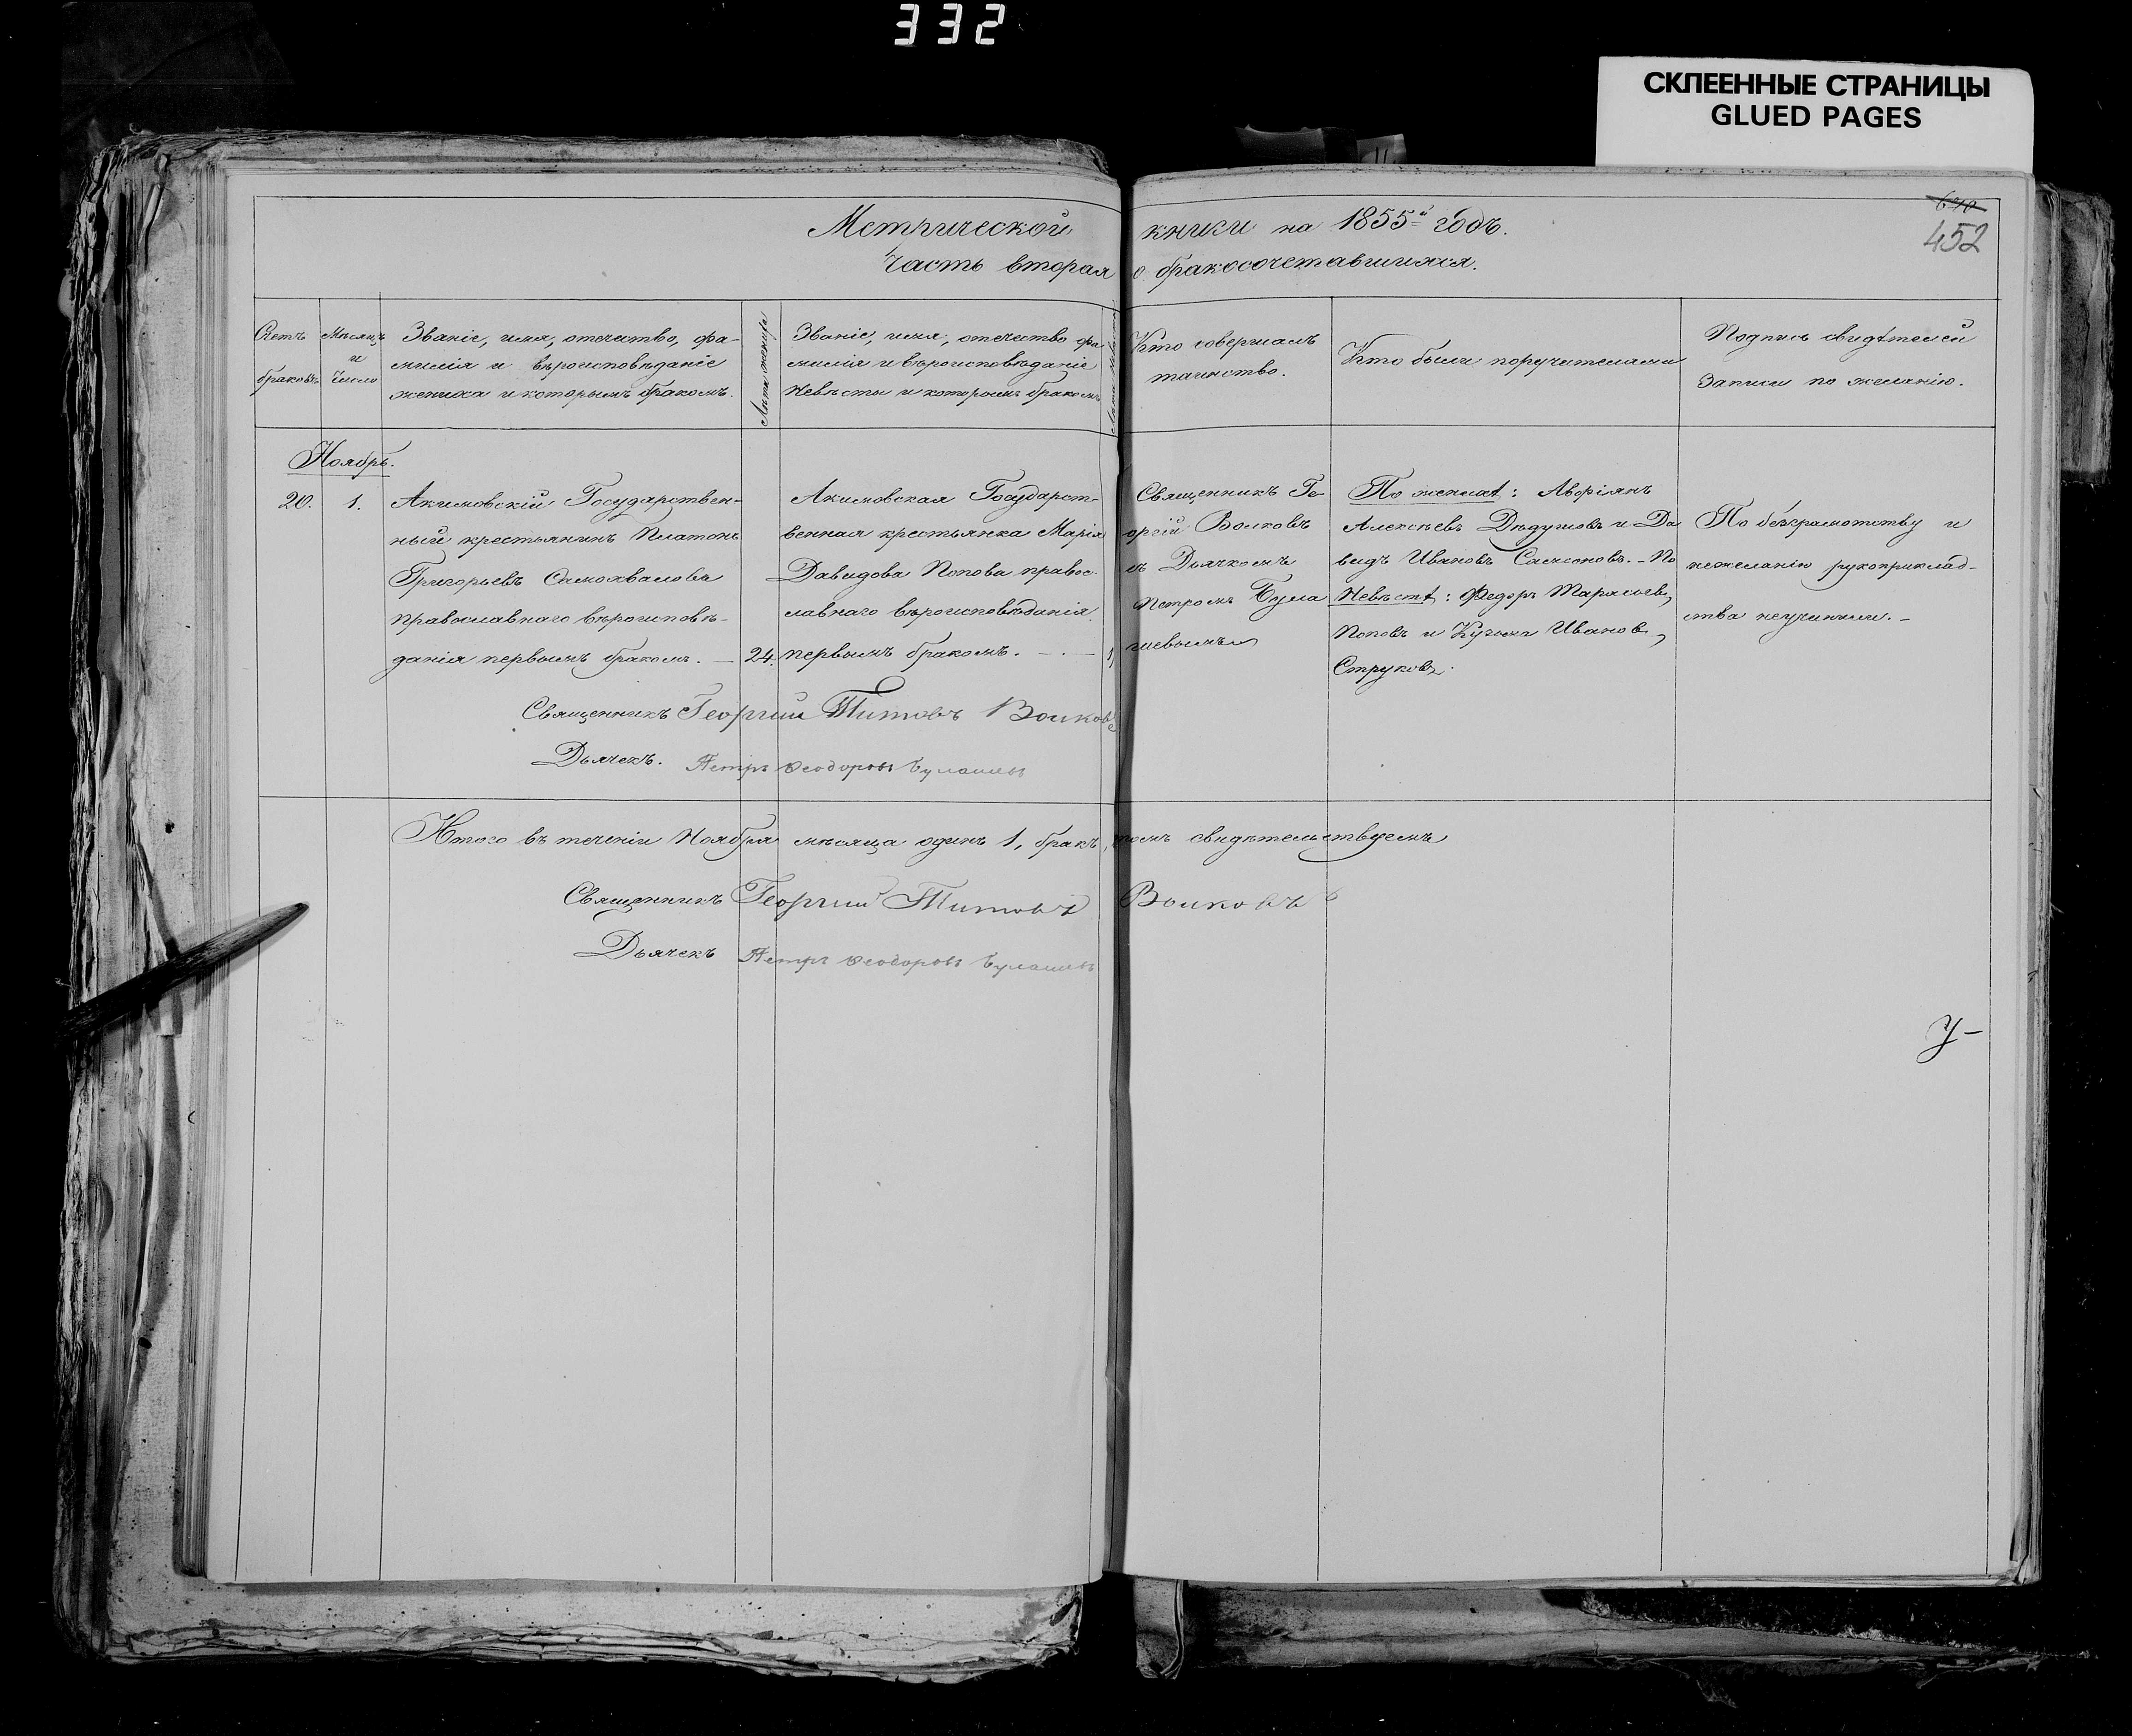 332
СКЛЕЕННЫЕ СТРАНИЦЫ
GLUED PAGES
452
Метрической книги на 1855й годъ.
Часть вторая о бракосочетавшихся.
Счетъ
браковъ
Мѣсяцъ
и
Число
Званіе, имя, отечество, фа-
милія и вѣроисповѣданіе
жениха и которымъ бракомъ.
Лѣта жениха
Званіе, имя, отечество фа
милія и вѣроисповѣданіе
Невѣсты и которымъ бракомъ
Кто совершалъ
таинство.
Кто были поручителями
Подпись свидѣтелей
записи по желанію.
Ноябрь.
20.
1.
Акимовскій Государствен-
ный крестьянинъ Платонъ
Григорьевъ Самохваловъ
Православнаго вѣроисповѣ-
данія первымъ бракомъ. —
24.
Акимовская Государст-
венная крестьянка Марія
Давидова Попова правос-
лавнаго вѣроисповѣданія
первымъ бракомъ. — . —
Священникъ Ге
оргій Волковъ
съ Дьячкомъ
Петромъ Була
шевымъ
По женихѣ:
Алексѣевъ Дѣдушовъ и Да
видъ Ивановъ Самсоновъ. - По
Невѣстѣ: Федоръ Тарасьевъ
Поповъ и Кузьма Ивановъ
Струковъ.
По безграмотству и
нежеланію рукоприклад-
ства неучинили. -
Священникъ Георгий Титовъ Волковъ
Дьячекъ. Петръ Феодоровъ Булашевъ
Итого въ теченіи Ноября мѣсяца одинъ 1, бракъ, томъ свидѣтельствуемъ
Священникъ Георгий Титовъ Волковъ
Дьячекъ Петръ Феодоровъ Булашевъ